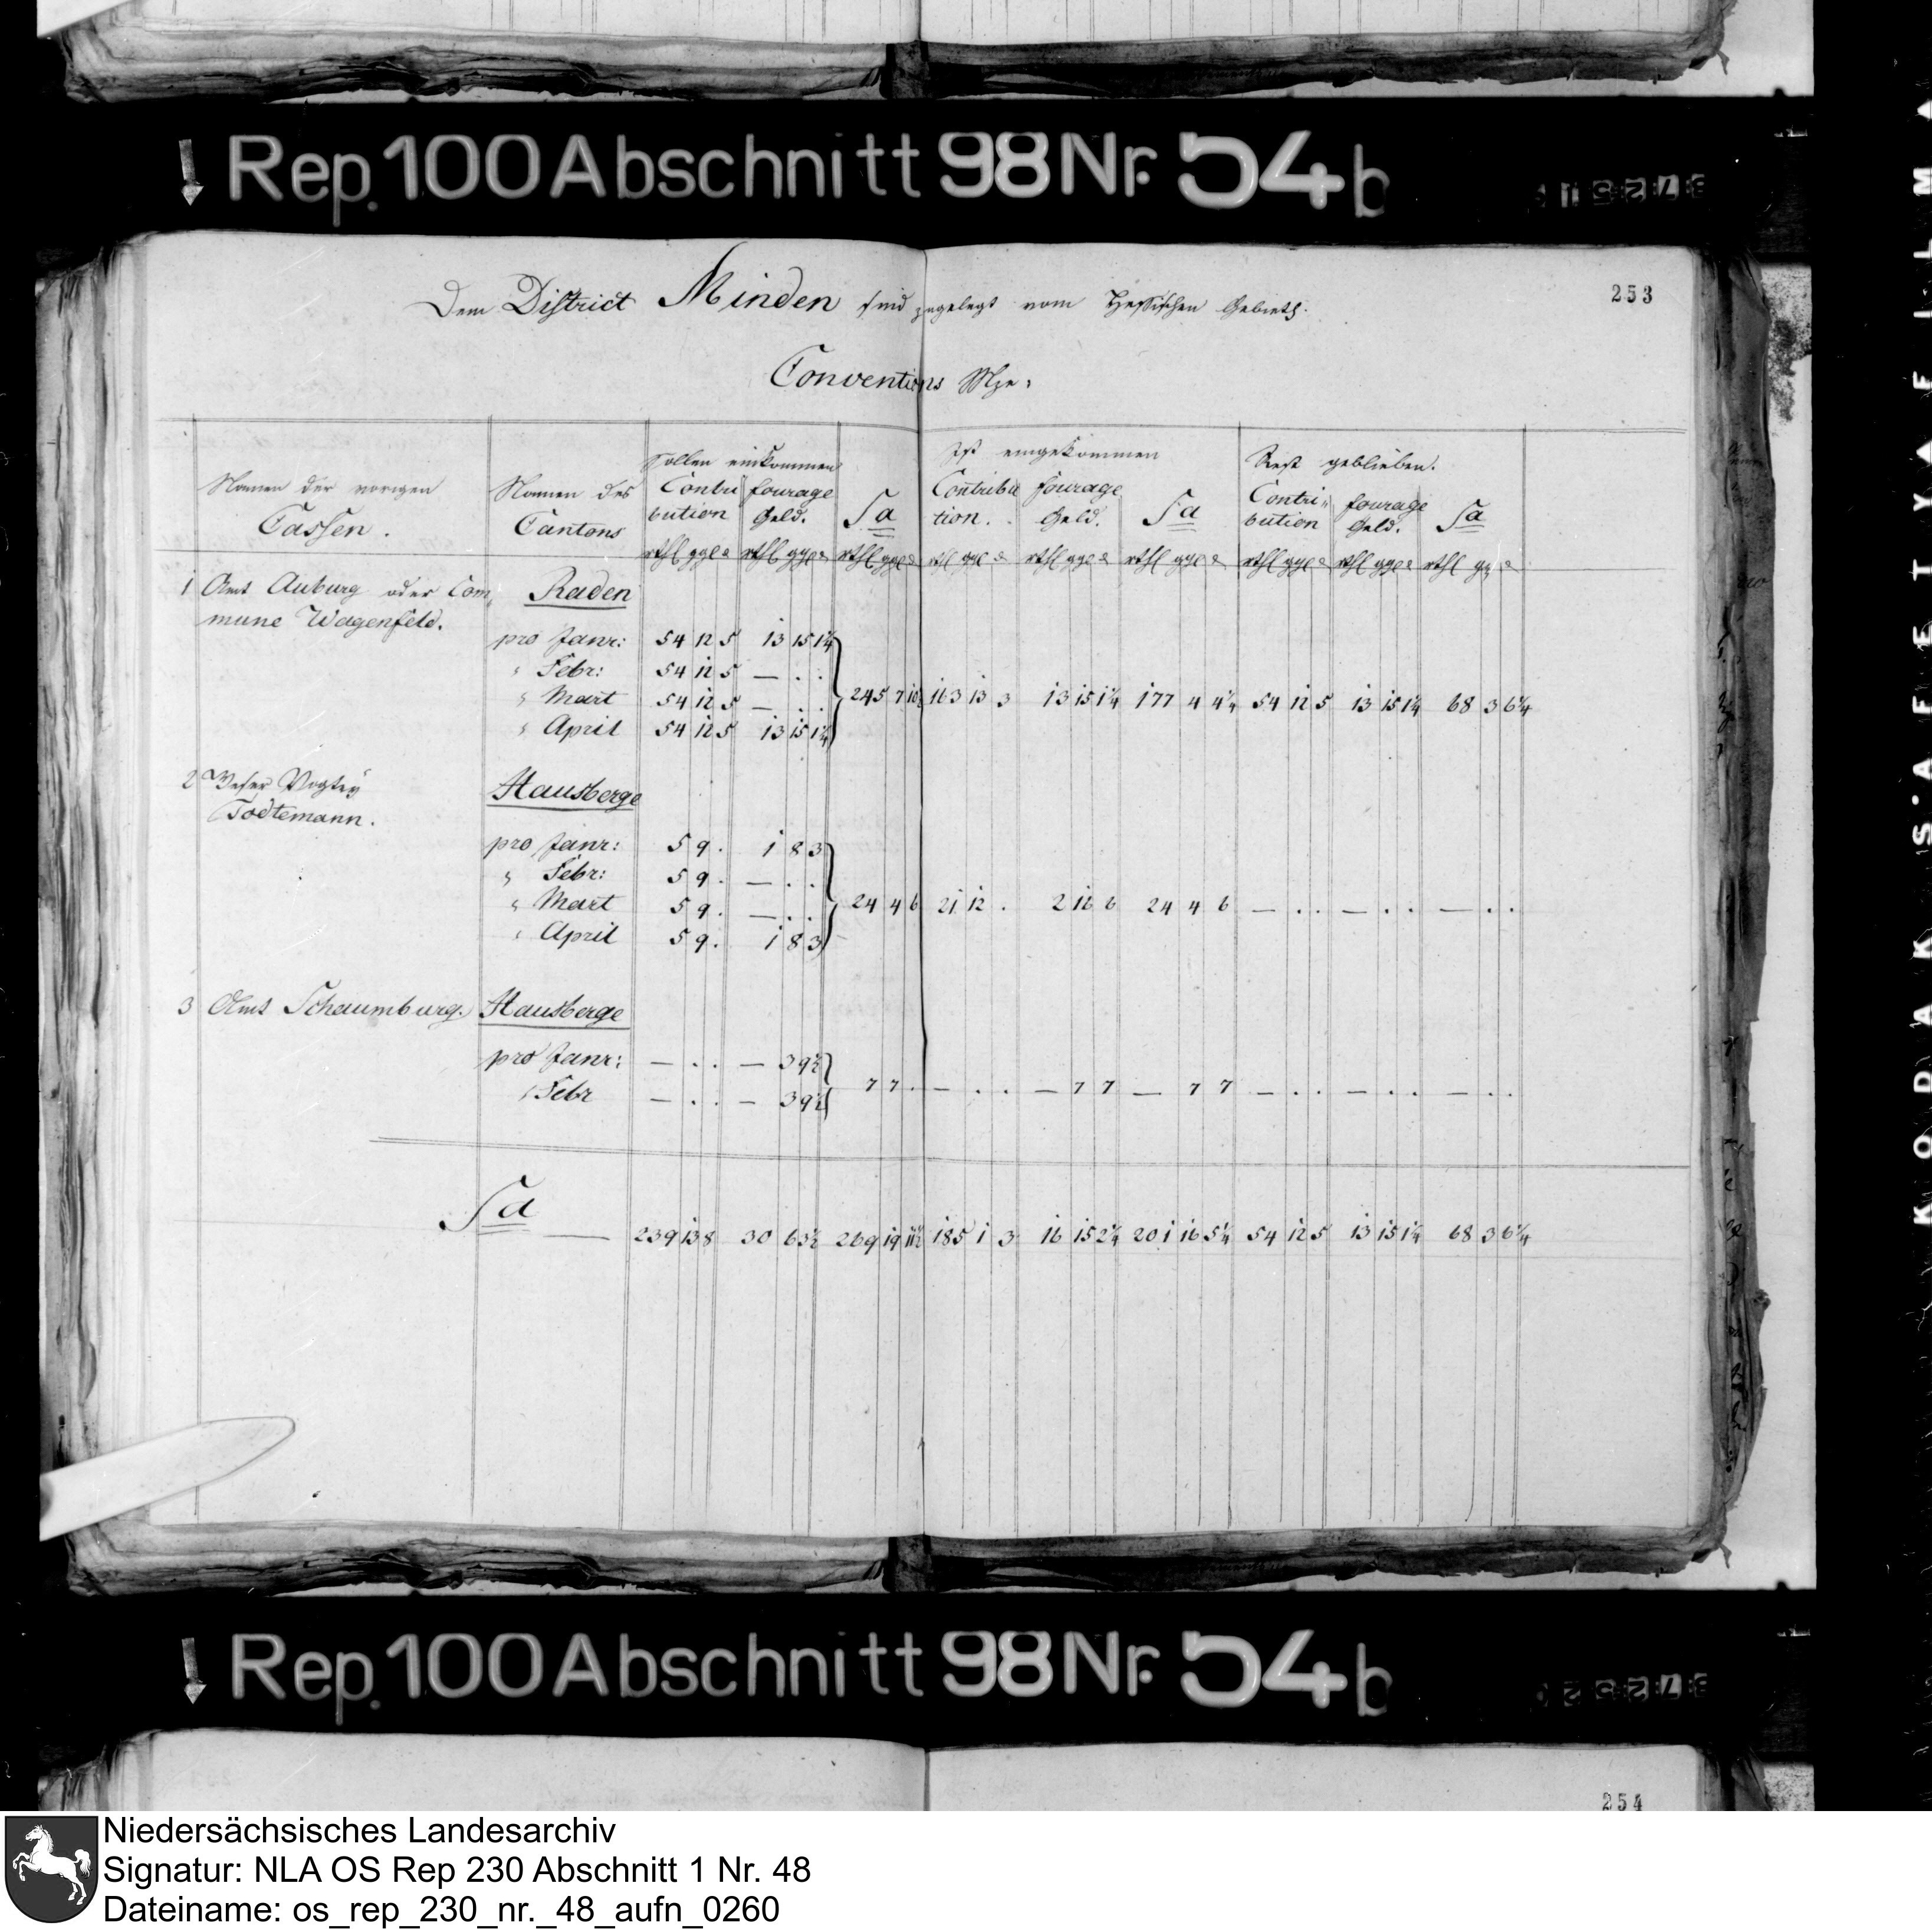 Rep. 100 Abschnitt 98 Nr. 54 b
253
Dem District Minden sind zugelegt vom Hessischen Gebieth.
Conventions Mze:
Namen der vorigen Cassen.
Namen des Cantons
Sollen einkommen
Contribution
fourage Geld.
Sa
Ist eingekommen
Contribution.
fourage Geld.
Sa
Rest geblieben.
Contribution
fourage Geld.
Sa
1 Amt Auburg oder Com Raden
mune Wagenfeld.
pro Janr: 54 12 5 13 15 1¼
" Febr: 54 12 5 — . .
" Mart 54 12 5 — . . 245 7 10½ 163 13 3 13 15 1¼ 177 4 4¼ 54 12 5 13 15 1¼ 68 3 6¼
" April 54 12 5 13 15 1¼
2 Weser Vogtey Hausberge
Todtemann.
pro Janr: 5 9 . 1 8 3
" Febr: 5 9 . — . .
" Mart 5 9 . — . . 24 4 6 21 12 . 2 16 6 24 4 6 — . . — . . — . .
" April 5 9 . 1 8 3
3 Amt Schaumburg. Hausberge
pro Janr: — . . — 3 9½
" Febr — . . — 3 9½ 7 7 . — . . — 7 7 — 7 7 — . . — . . — . .
Sa — 239 13 8 30 6 3½ 269 19 11½ 185 1 3 16 15 2¼ 201 16 5¼ 54 12 5 13 15 1¼ 68 3 6¼
Rep. 100 Abschnitt 98 Nr. 54 b
254
KODAK SAFETY FILM
Niedersächsisches Landesarchiv
Signatur: NLA OS Rep 230 Abschnitt 1 Nr. 48
Dateiname: os_rep_230_nr._48_aufn_0260